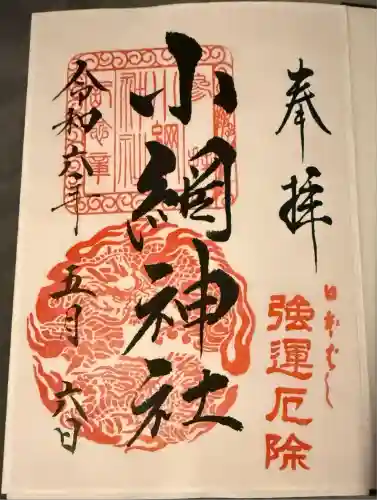 奉拝
日本ばし
強運厄除
小網神社
令和六年
五月
六日